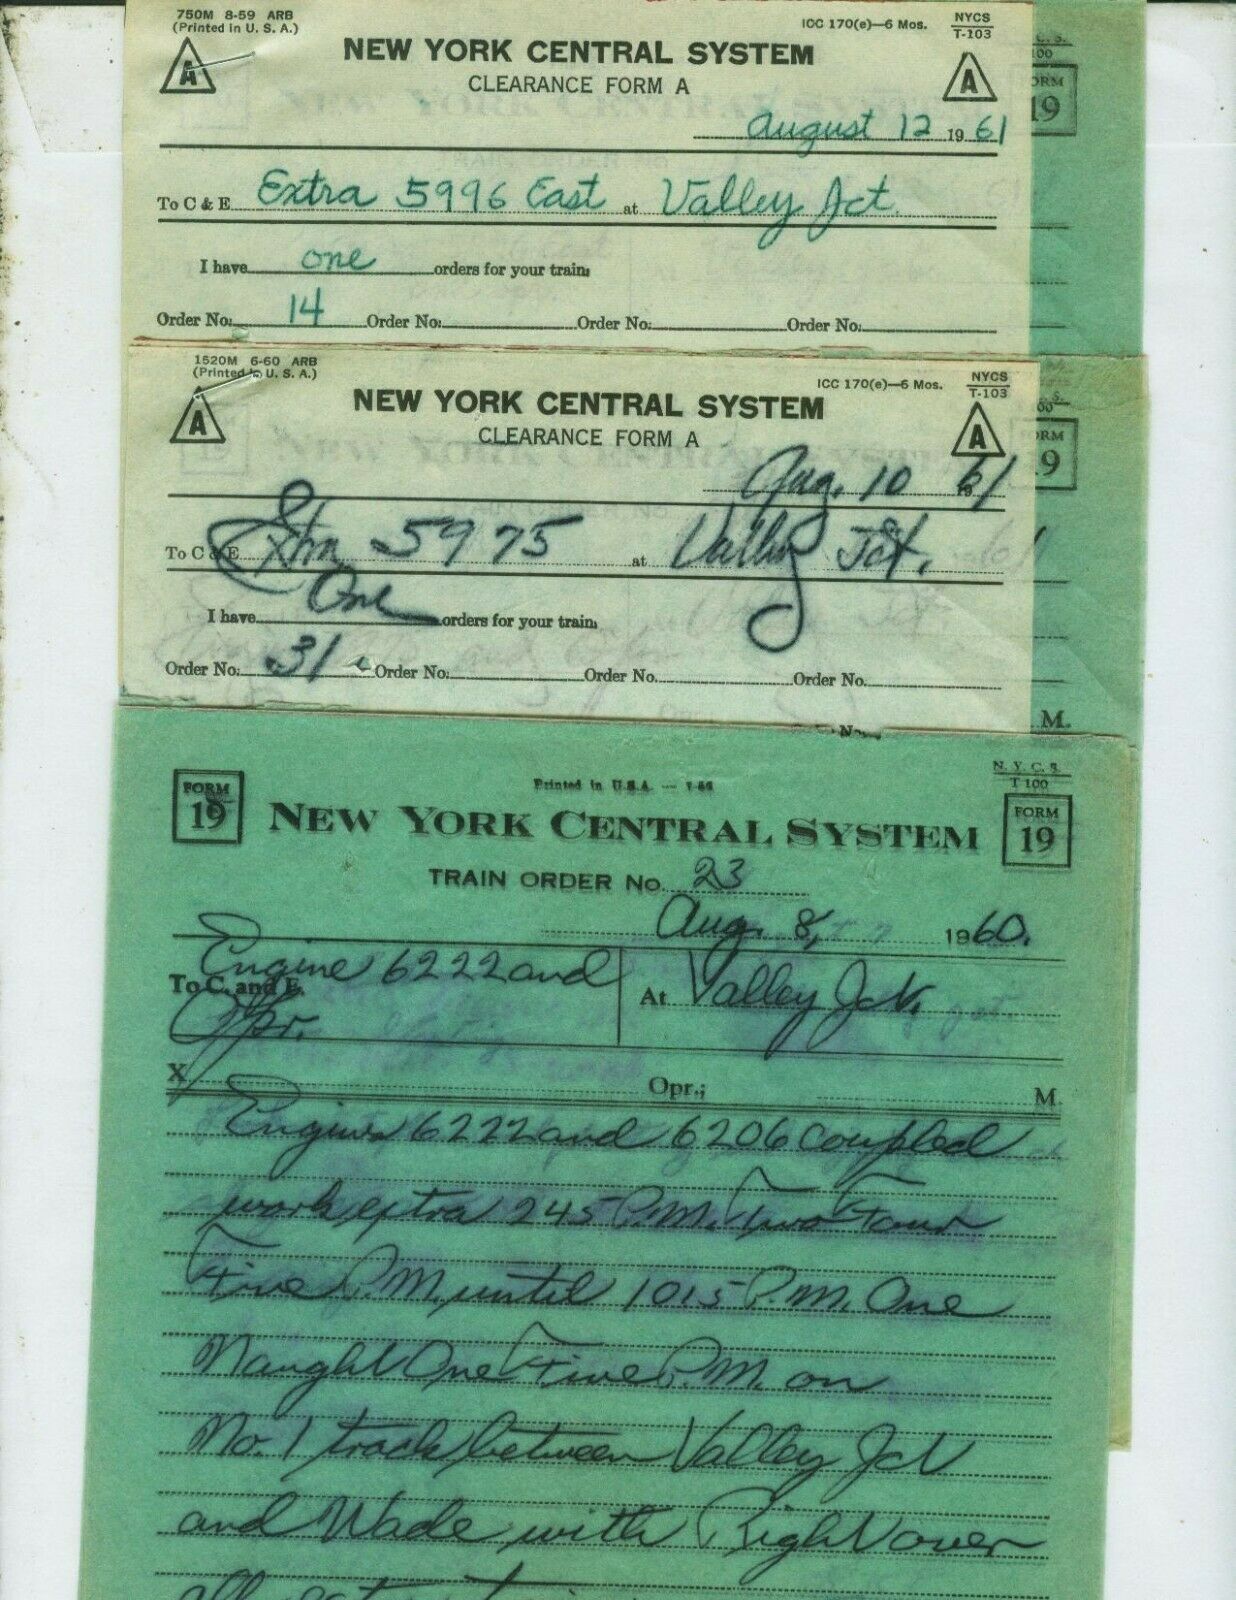 750M 8-59 ARB
(Printed in U. S. A.)
ICC 170(e)—6 Mos.
NYCS
T-103
A
NEW YORK CENTRAL SYSTEM
A
CLEARANCE FORM A
August 12 1961
To C & E Extra 5996 East at Valley Jct.
I have one orders for your train.
Order No. 14 Order No. Order No. Order No.
C. S.
100
ORM
19
1520M 6-60 ARB
(Printed in U. S. A.)
ICC 170(e)—6 Mos.
NYCS
T-103
A
NEW YORK CENTRAL SYSTEM
A
CLEARANCE FORM A
Aug. 10 1961
To C & E 5975 at Valley Jct.
I have One orders for your train.
Order No. 31 Order No. Order No. Order No.
ORM
9
M.
Printed in U.S.A.
N. Y. C. S.
T 100
FORM
19
NEW YORK CENTRAL SYSTEM
FORM
19
TRAIN ORDER No. 23
Aug. 8, 1960.
To C. and E. Engine 6222 and
Opr.
At Valley Jct.
X Opr.; M
Engines 6222 and 6206 coupled
work extra 245 P.M. Two Four
Five P.M. until 1015 P.M. One
Naught One Five P.M. on
No. 1 track between Valley Jct
and Wade with Right over
all